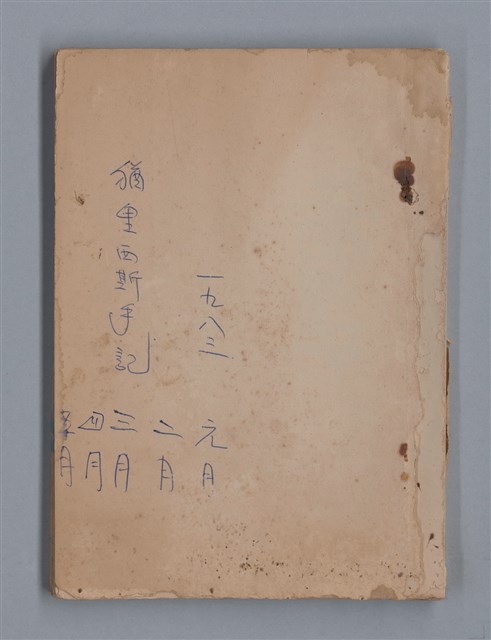 一九八三
元月
二月
猶里西斯手記
三月
四月
月